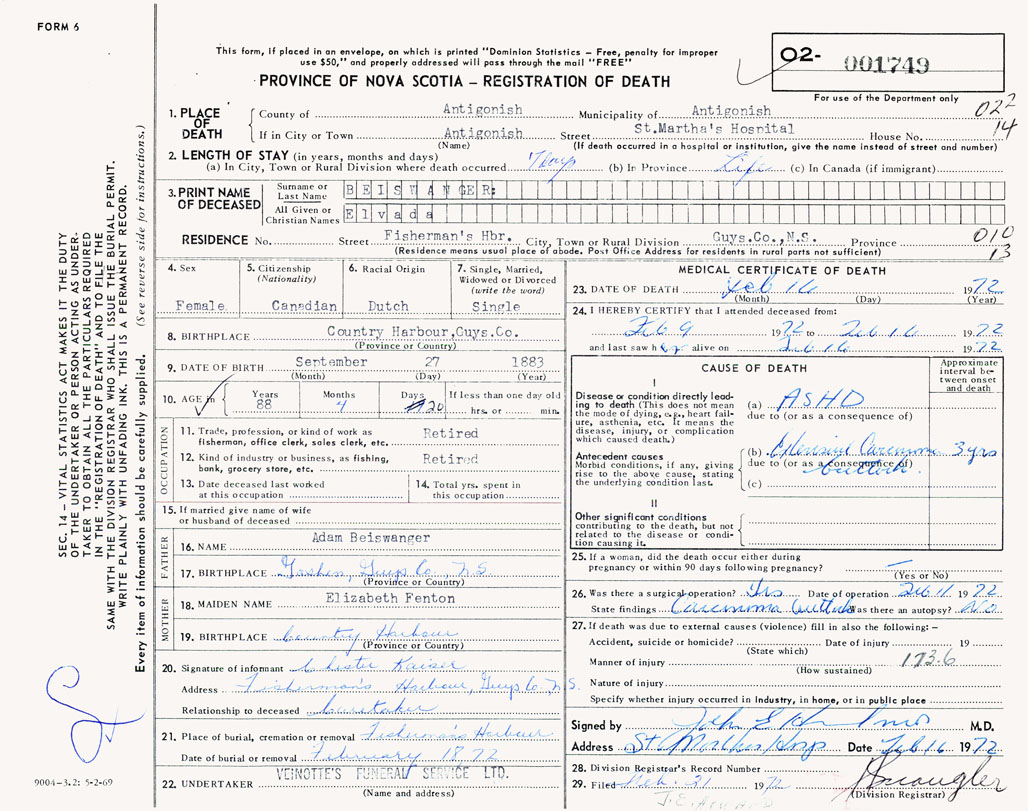 FORM 6
This form, if placed in an envelope, on which is printed "Dominion Statistics – Free, penalty for improper
use $50," and properly addressed will pass through the mail "FREE"
PROVINCE OF NOVA SCOTIA – REGISTRATION OF DEATH
02- 001749
For use of the Department only
022
14
1. PLACE OF DEATH
County of Antigonish Municipality of Antigonish
If in City or Town Antigonish Street St.Martha's Hosnital House No.
(Name) (If death occurred in a hospital or institution, give the name instead of street and number)
2. LENGTH OF STAY (in years, months and days)
(a) In City, Town or Rural Division where death occurred 7 days (b) In Province Life (c) In Canada (if immigrant)
3. PRINT NAME OF DECEASED
Surname or Last Name BEISWANGER
All Given or Christian Names Elvada
RESIDENCE No. Street Fisherman's Hbr. City, Town or Rural Division Guys.Co.,N.S. Province
(Residence means usual place of abode. Post Office Address for residents in rural parts not sufficient)
010
13
4. Sex
Female
5. Citizenship
(Nationality)
Canadian
6. Racial Origin
Dutch
7. Single, Married,
Widowed or Divorced
(write the word)
Single
8. BIRTHPLACE Country Harbour,Guys.Co.
(Province or Country)
9. DATE OF BIRTH September 27 1883
(Month) (Day) (Year)
10. AGE in
Years 88
Months 4
Days 20
If less than one day old
hrs. or min.
OCCUPATION
11. Trade, profession, or kind of work as
fisherman, office clerk, sales clerk, etc. Retired
12. Kind of industry or business, as fishing,
bank, grocery store, etc. Retired
13. Date deceased last worked
at this occupation
14. Total yrs. spent in
this occupation
15. If married give name of wife
or husband of deceased
FATHER
16. NAME Adam Beiswanger
17. BIRTHPLACE Goshen, Guys Co. N.S.
(Province or Country)
MOTHER
18. MAIDEN NAME Elizabeth Fenton
19. BIRTHPLACE Country Harbour
(Province or Country)
20. Signature of informant Chester Kaiser
Address Fisherman's Harbour, Guys Co. N.S.
Relationship to deceased Caretaker
21. Place of burial, cremation or removal Fisherman's Harbour
Date of burial or removal February 18 72
22. UNDERTAKER VEINOTTE'S FUNERAL SERVICE LTD.
(Name and address)
MEDICAL CERTIFICATE OF DEATH
23. DATE OF DEATH Feb 16 1972
(Month) (Day) (Year)
24. I HEREBY CERTIFY that I attended deceased from:
Feb 9 1972 to Feb 16 1972
and last saw her alive on Feb 16 1972
CAUSE OF DEATH
Approximate
interval be-
tween onset
and death
I
Disease or condition directly lead-
ing to death (This does not mean
the mode of dying, e.g., heart fail-
ure, asthenia, etc. It means the
disease, injury, or complication
which caused death.)
(a) ASHD
due to (or as a consequence of)
Antecedent causes
Morbid conditions, if any, giving
rise to the above cause, stating
the underlying condition last.
(b) Carcinoma 3 yrs
due to (or as a consequence of)
(c)
II
Other significant conditions
contributing to the death, but not
related to the disease or condi-
tion causing it.
25. If a woman, did the death occur either during
pregnancy or within 90 days following pregnancy? –
(Yes or No)
26. Was there a surgical operation? Yes Date of operation Feb 11 1972
State findings Carcinoma Was there an autopsy? No
27. If death was due to external causes (violence) fill in also the following: –
Accident, suicide or homicide? Date of injury 19
(State which)
Manner of injury 173.6
(How sustained)
Nature of injury
Specify whether injury occurred in Industry, in home, or in public place
Signed by M.D.
Address St. Marthas Hosp Date Feb 16 1972
28. Division Registrar's Record Number
29. Filed Feb. 21 1972
(Division Registrar)
SEC. 14 – VITAL STATISTICS ACT MAKES IT THE DUTY
OF THE UNDERTAKER OR PERSON ACTING AS UNDER-
TAKER TO OBTAIN ALL THE PARTICULARS REQUIRED
IN THE "REGISTRATION OF DEATH" AND TO FILE THE
SAME WITH THE DIVISION REGISTRAR WHO SHALL ISSUE THE BURIAL PERMIT.
WRITE PLAINLY WITH UNFADING INK. THIS IS A PERMANENT RECORD.
Every item of information should be carefully supplied. (See reverse side for instructions.)
9004-3.2: 5-2-69